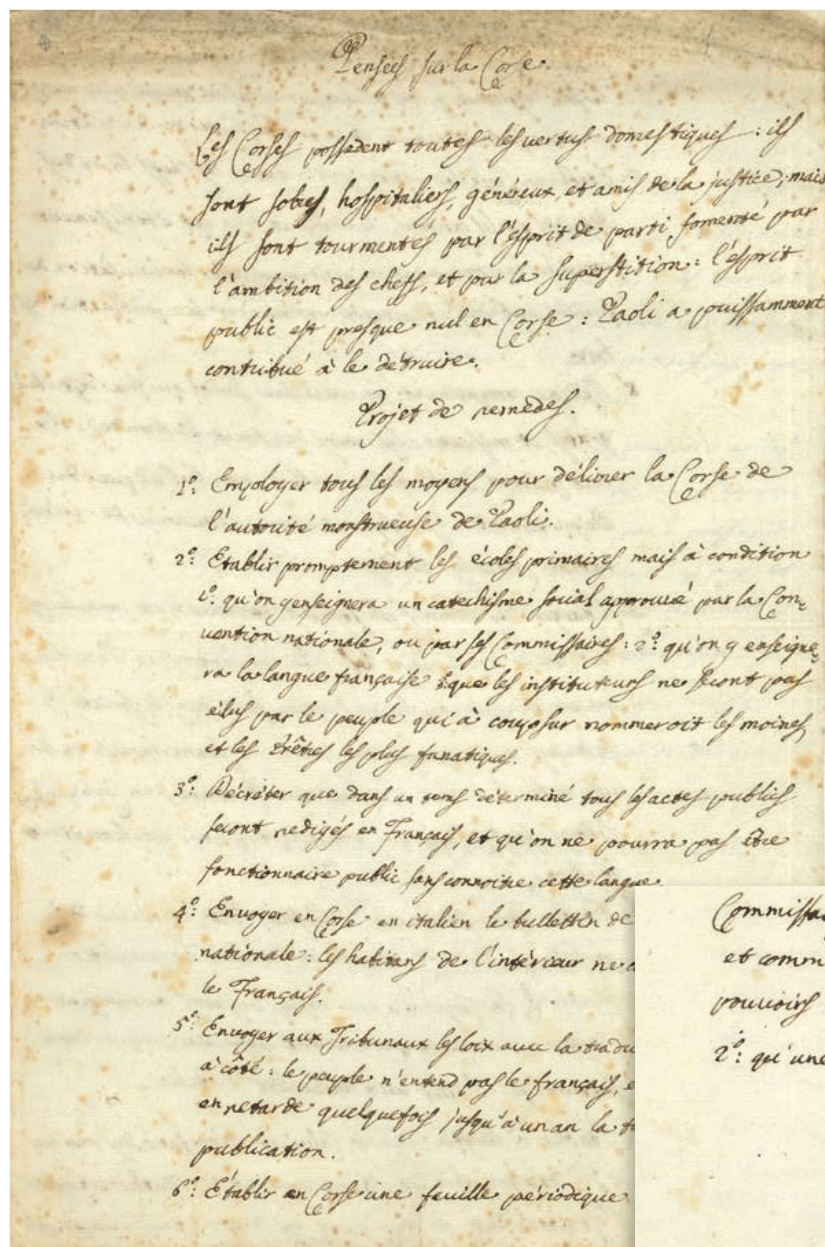 Pensées sur la Corse.
Les Corses possèdent toutes les vertus domestiques : ils
sont sobres, hospitaliers, généreux, et amis de la justice; mais
ils sont tourmentés par l'esprit de parti fomenté par
l'ambition des chefs, et par la superstition : l'esprit
public est presque nul en Corse : Paoli a puissamment
contribué à le détruire.
Projet de remedes.
1º: Employer tous les moyens pour délivrer la Corse de
l'autorité monstrueuse de Paoli.
2º: Etablir promptement les écoles primaires mais à condition
1º. qu'on y enseignera un catechisme social approuvé par la Con=
vention nationale, ou par ses Commissaires : 2º: qu'on y enseigne=
ra la langue française que les instituteurs ne seront pas
élus par le peuple qui à coup sur nommeroit les moines,
et les Prêtres les plus fanatiques.
3º: Décréter que dans un tems déterminé tous les actes publics
seront redigés en Français, et qu'on ne pourra pas être
fonctionnaire public sans connoitre cette langue.
4º: Envoyer en Corse en italien le bulletin de
nationale : les habitans de l'intérieur ne
le Français.
5º: Envoyer aux Tribunaux les loix avec la tradu
à côté : le peuple n'entend pas le français, e
en retarde quelquefois jusqu'à un an la
publication.
6º: Établir en Corse une feuille périodique
Commissa
et comm
pouvoirs
2º: qu'une